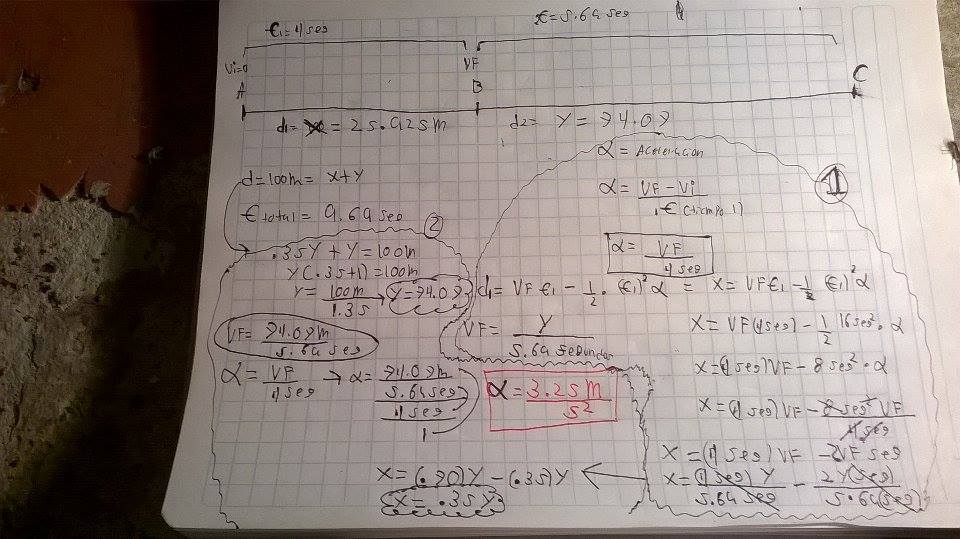 t1=4seg
t=5.64seg
Vi=0
VF
A
B
C
d1= = 25.925m
d2= Y=74.07
α = Aceleracion
d=100m= x+y
α= VF-Vi / t (tiempo 1)
1
t total = 9.64seg
2
α= VF / 4seg
.35Y + Y=100m
Y(.35+1)=100m
Y= 100m / 1.35 → Y=74.07
d1= VF t1 - 1/2 . (t1)² α = x= VF t1 - 1/2 (t1)² α
VF= 74.07m / 5.64seg
VF= Y / 5.64 segundos
x= VF(4seg) - 1/2 16seg² . α
α= VF / 4seg → α= 74.07m / 5.64seg / 4seg / 1
α= 3.25m / s²
x=(4seg)VF - 8seg² . α
x=(4seg)VF - 8seg² VF / 4seg
x=(4seg)VF - 2VF seg
x=(4seg)Y / 5.64seg - 2Y(seg) / 5.64(seg)
x=(.70)Y - (.35)Y
x= .35Y